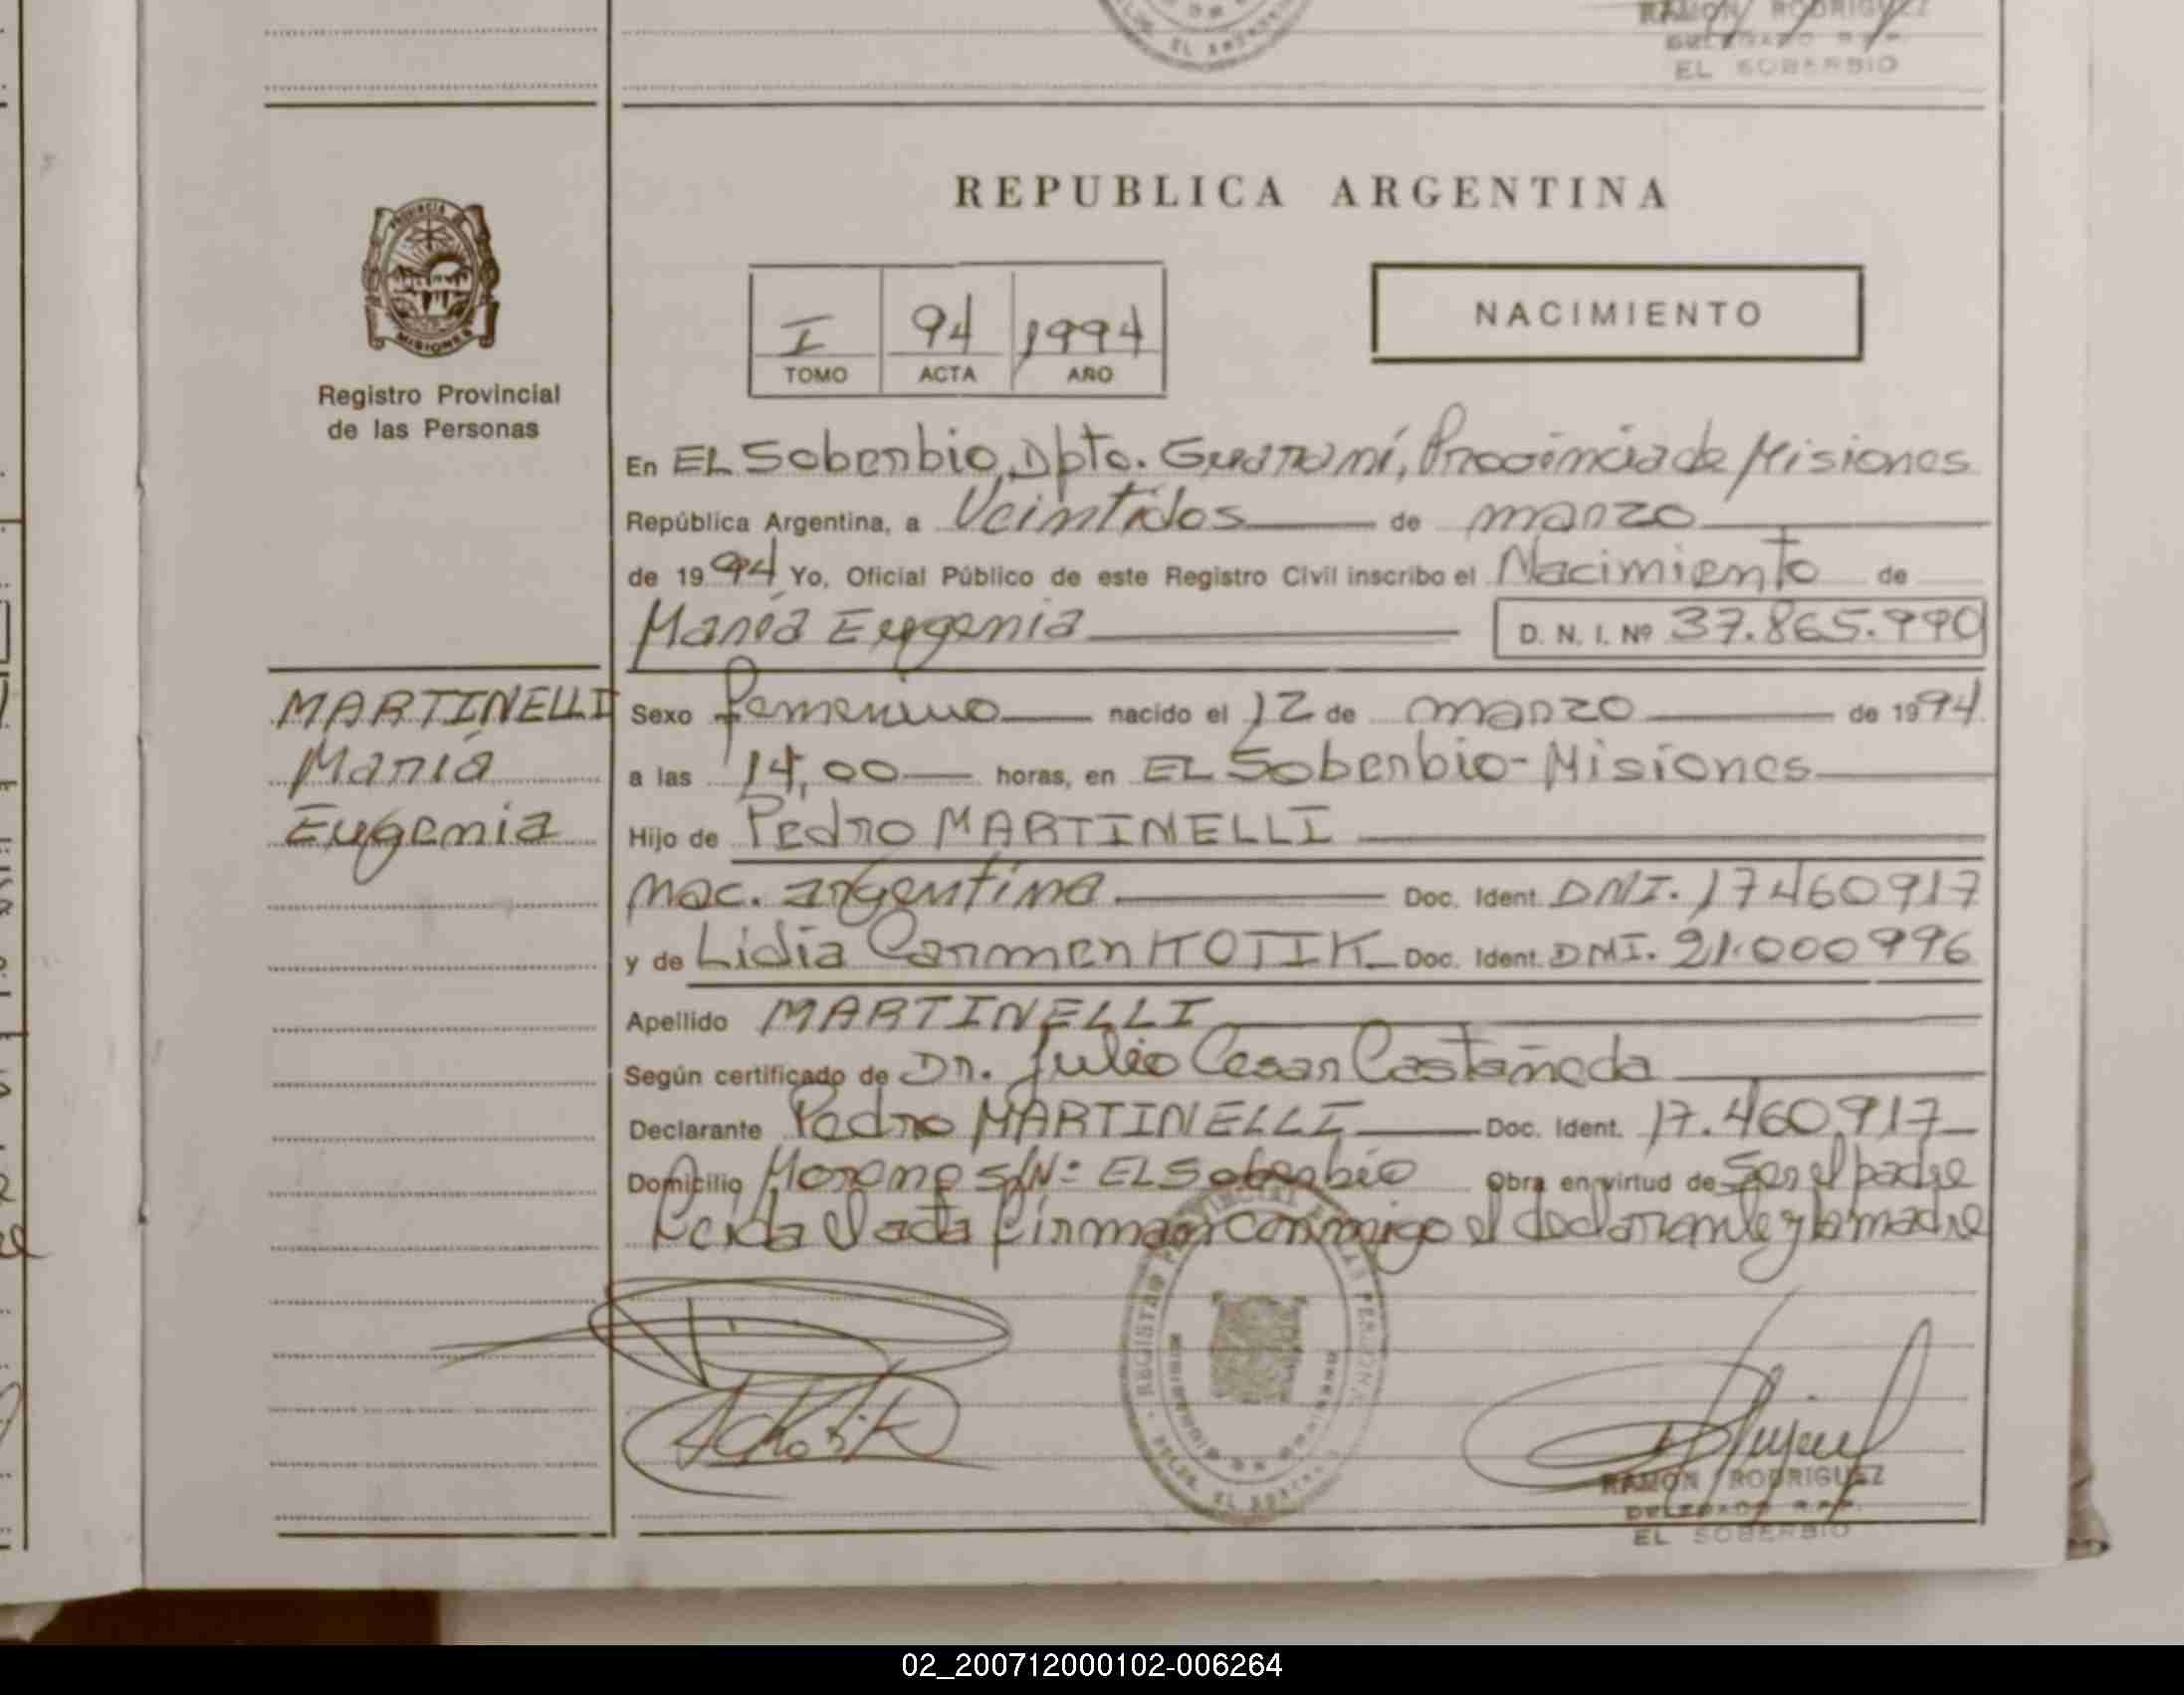 RAMON RODRIGUEZ
DELEGADO R.P.P.
EL SOBERBIO
REPUBLICA ARGENTINA
PROVINCIA DE
MISIONES
Registro Provincial
de las Personas
I 94 1994
TOMO ACTA AÑO
NACIMIENTO
En EL Soberbio, Dpto. Guaraní, Provincia de Misiones
República Argentina, a Veintidos de marzo
de 1994 Yo, Oficial Público de este Registro Civil inscribo el Nacimiento de
María Eugenia D. N. I. Nº 37.865.990
MARTINELLI
María
Eugenia
Sexo femenino nacido el 12 de marzo de 1994
a las 14,00 horas, en EL Soberbio-Misiones
Hijo de Pedro MARTINELLI
nac. argentina Doc. Ident. DNI. 17460917
y de Lidia Carmen KOTIK Doc. Ident. DNI. 21.000996
Apellido MARTINELLI
Según certificado de Dr. Julio Cesar Castañeda
Declarante Pedro MARTINELLI Doc. Ident. 17.460917
Domicilio Moreno S/N: EL Soberbio Obra en virtud de Ser el padre
Leida el acta firman conmigo el declarante y la madre
REGISTRO PROVINCIAL DE LAS PERSONAS
RAMON RODRIGUEZ
DELEGADO R.P.P.
EL SOBERBIO
02_200712000102-006264